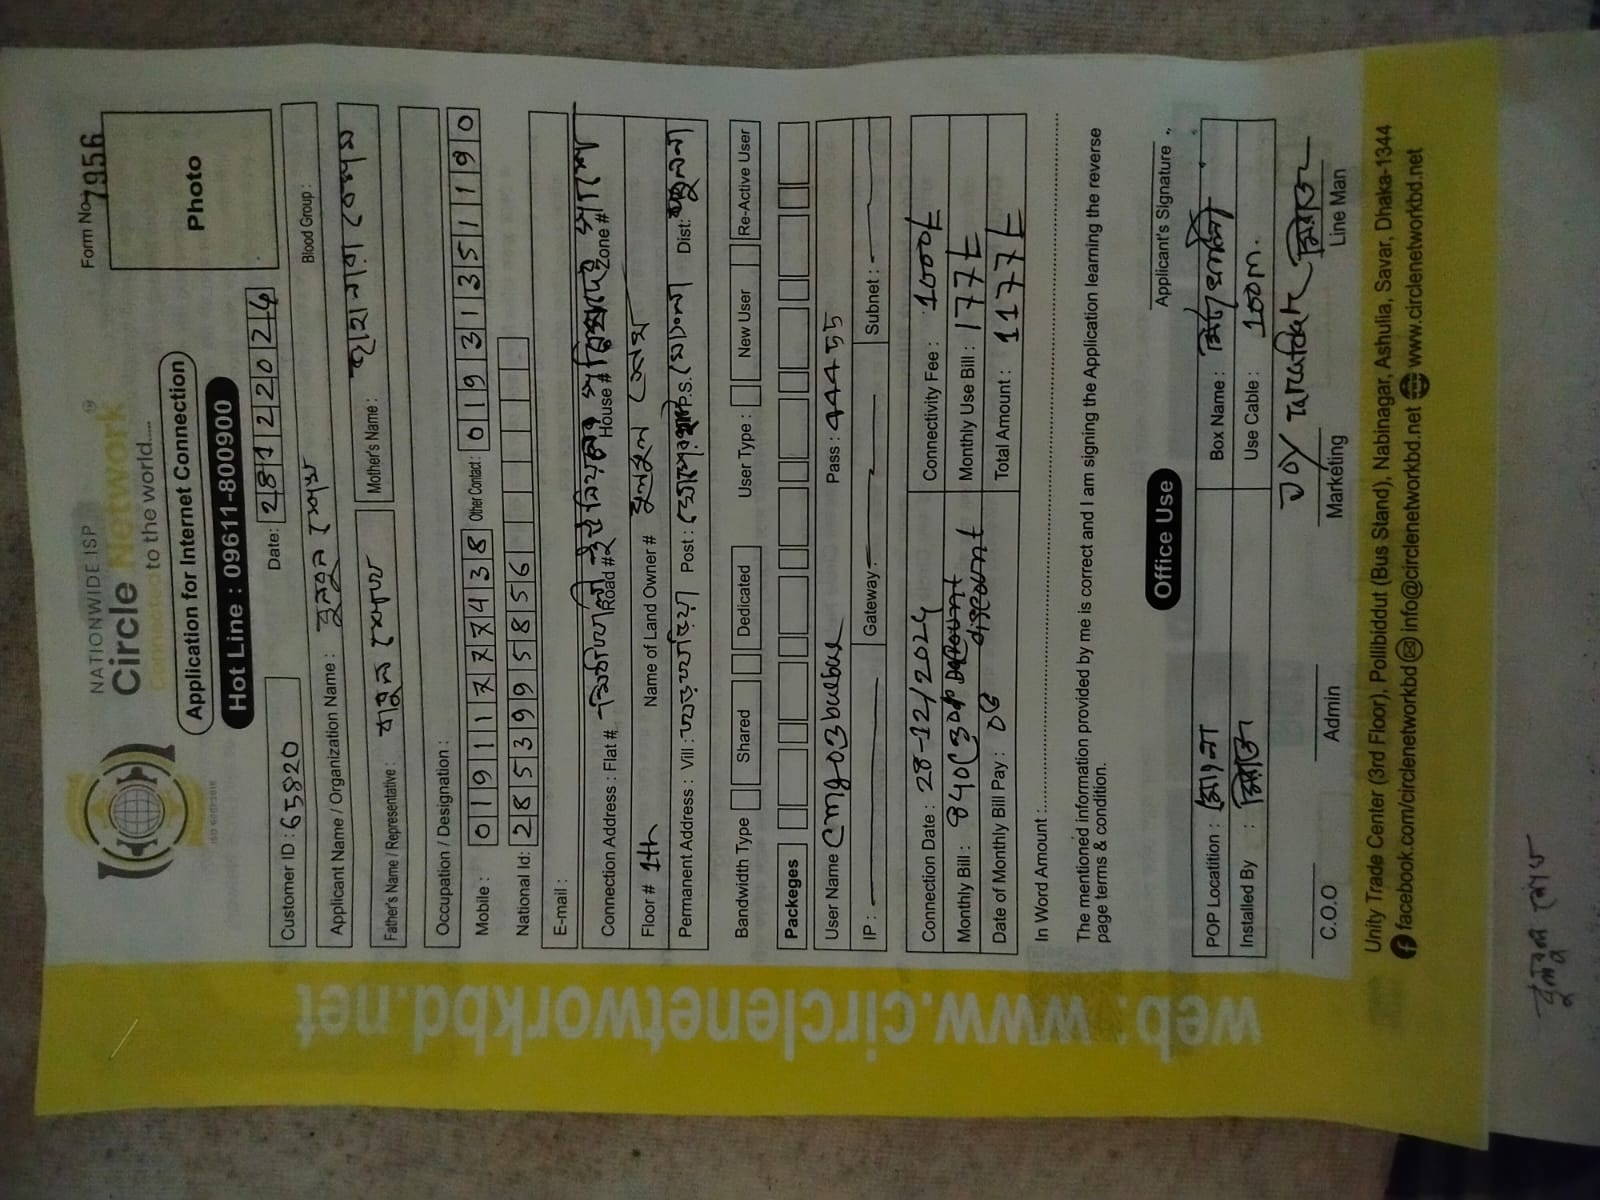 Form No 7956
NATIONWIDE ISP
Circle Network ®
Connected to the world....
ISO 9001:2015
Application for Internet Connection
Hot Line : 09611-800900
Photo
Customer ID : 65820
Date: 28122024
Applicant Name / Organization Name : বুলবুল শেখ
Blood Group :
Father's Name / Representative : বাবুল শেখ
Mother's Name : বেগম
Occupation / Designation :
Mobile : 01911777438 Other Contact : 01931351190
National Id: 2853995856
E-mail :
Connection Address : Flat # Road # House # Zone #
Floor # 1th Name of Land Owner # বুলবুল শেখ
Permanent Address : Vill : Post : P.S. মোংলা Dist: খুলনা
Bandwidth Type Shared Dedicated User Type : New User Re-Active User
Packeges
User Name cmg03bulbul Pass : 44455
IP : Gateway : Subnet :
Connection Date : 28-12/2024 Connectivity Fee : 1000৳
Monthly Bill : 840(30% discount Monthly Use Bill : 177৳
Date of Monthly Bill Pay : 08 Total Amount : 1177৳
In Word Amount :
The mentioned information provided by me is correct and I am signing the Application learning the reverse
page terms & condition.
Applicant's Signature
Office Use
POP Locatition : মোংলা Box Name :
Installed By : মিরাজ Use Cable : 100m.
Joy Tarafder মিরাজ
C.O.O Admin Marketing Line Man
Unity Trade Center (3rd Floor), Pollibiddut (Bus Stand), Nabinagar, Ashulia, Savar, Dhaka-1344
facebook.com/circlenetworkbd info@circlenetworkbd.net www.circlenetworkbd.net
web: www.circlenetworkbd.net
বুলবুল শেখ